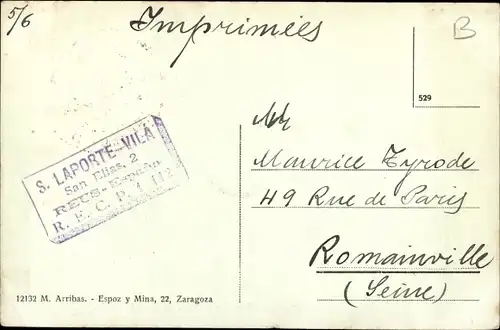 5/6
Imprimées
B
529
S. LAPORTE VILA
San Elias, 2
REUS-España
R. E. C. P. 1 112
Mr
Maurice Tyrode
49 Rue de Paris
Romainville
(Seine)
12132 M. Arribas. - Espoz y Mina, 22, Zaragoza